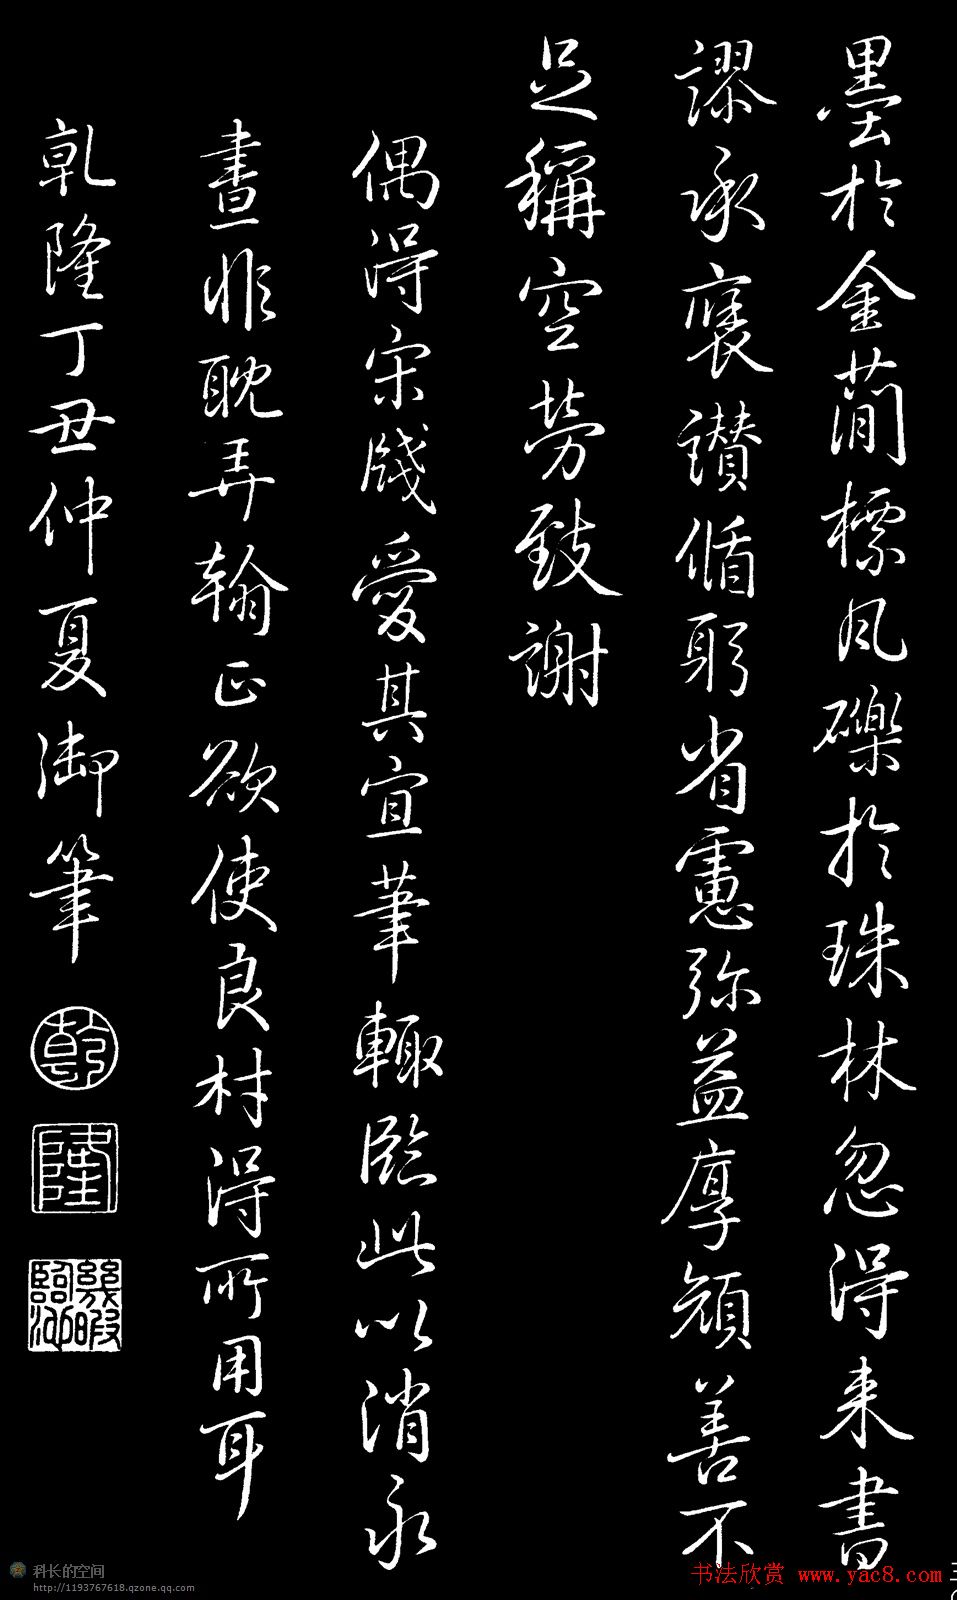 墨於金蕳標風礫於珠林忽得来書
謬承褒讃循躬省慮弥益厚顔善不
足稱空勞致謝
偶得宋牋愛其宜筆輙臨此以消永
晝非耽弄翰正欲使良材得所用耳
乾隆丁丑仲夏御筆
乾
隆
幾暇臨池
科长的空间
http://1193767618.qzone.qq.com
书法欣赏 www.yac8.com